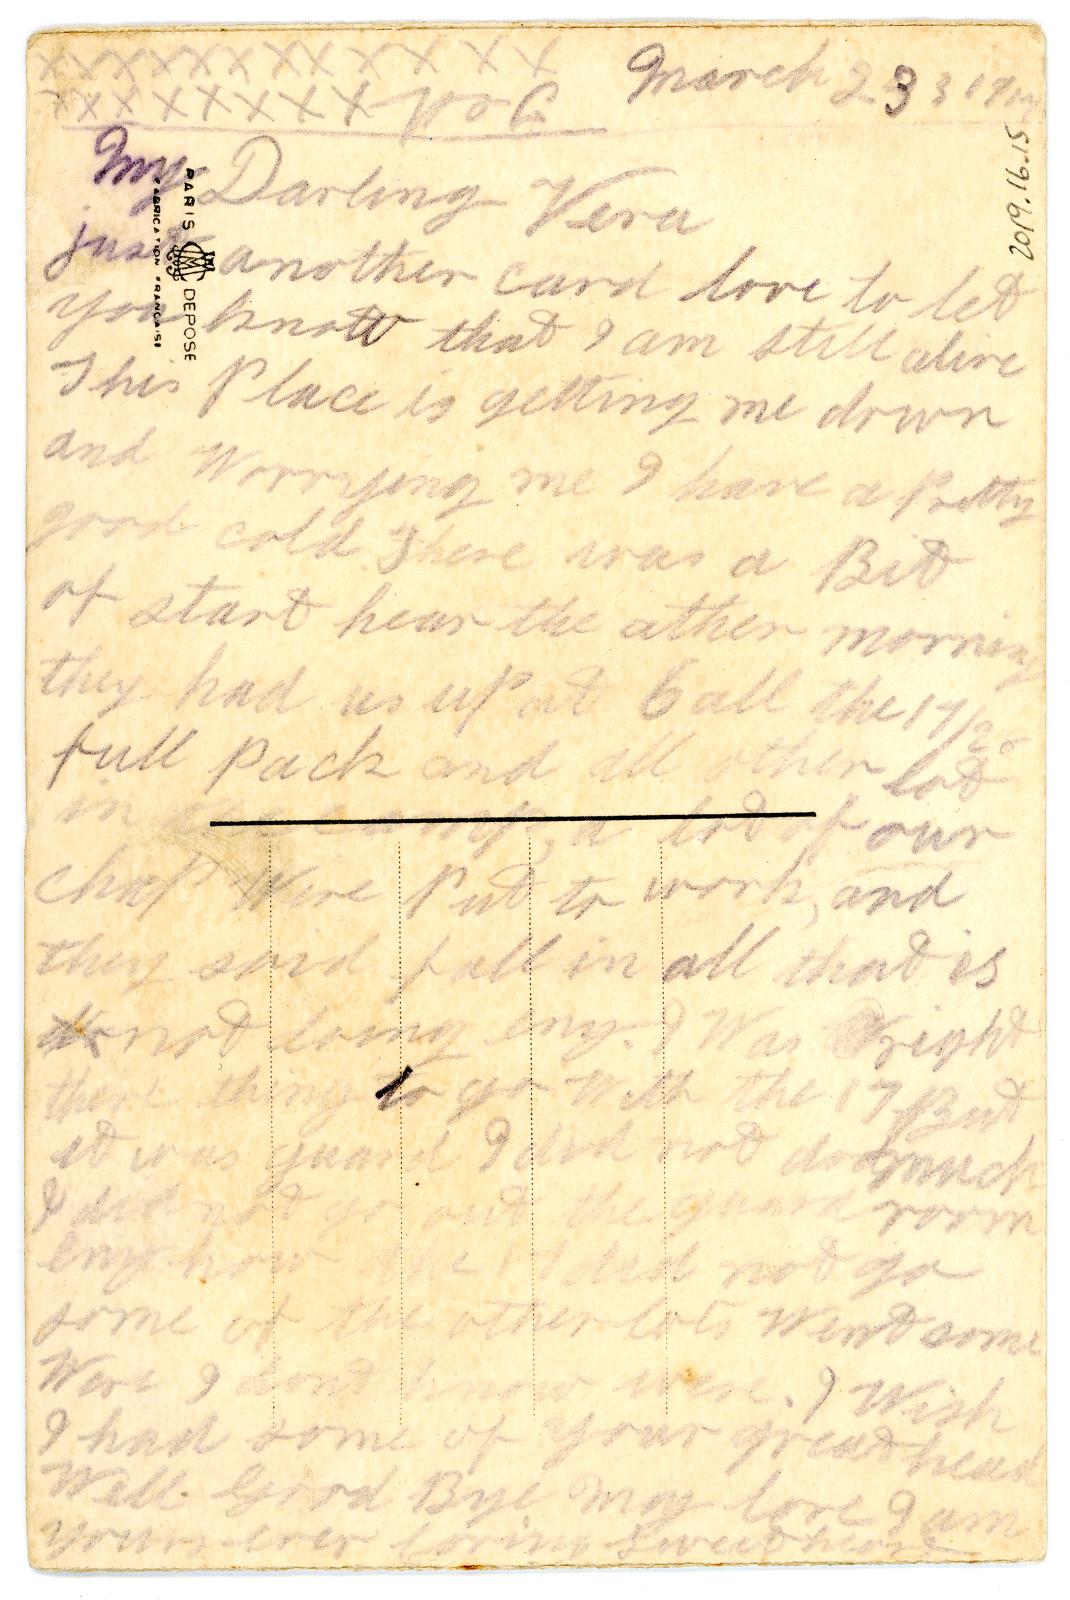 X X X X X X X X X X X X
X X X X X X X X
March 23
My Darling Vera
just another card love to let
you know that I am still alive
This Place is getting me down
and Worrying me I have a Pretty
good cold There was a Bit
of start hear the ather morning
they had us up at 6 all the 17/20
full Pack and all other lot
in camp, a lot of our
chap Were Put to work, and
they said fall in all that is
not doing eny. I Was right
there thing to go With the 17 But
it was guard I did not do much
I did not go out the guard room
eny how the 17 did not go
some of the other lots Went some
Were I dont know were. I Wish
I had some of your great head
Well Good Bye my love I am
yours ever loving Sweetheart
PARIS DEPOSE
FABRICATION FRANÇAISE
2019.16.15